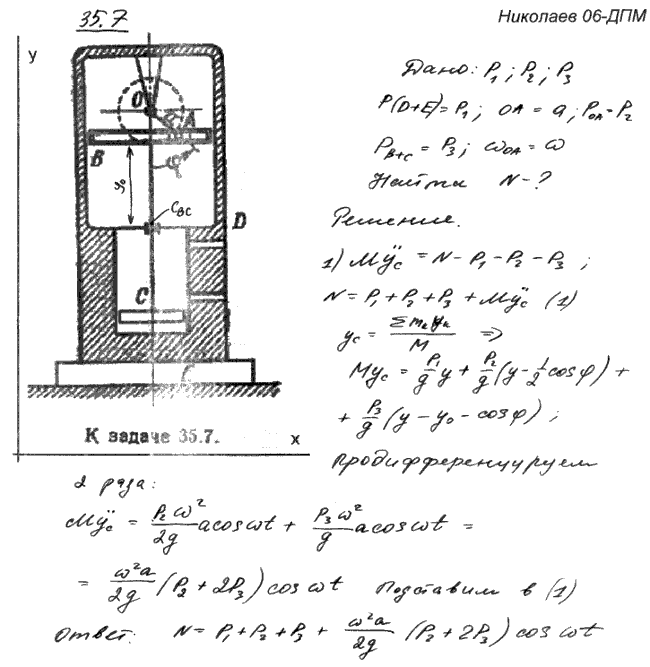 35.7
Николаев 06-ДПМ
y
O
A
φ
B
y₀
C_BC
D
C
К задаче 35.7.
x
Дано: P₁; P₂; P₃
P(D+E)=P₁; OA = a; P_OA = P₂
P_B+C = P₃; ω_OA = ω
Найти N-?
Решение.
1) Mÿ_c = N - P₁ - P₂ - P₃ ;
N = P₁ + P₂ + P₃ + Mÿ_c (1)
y_c = Σ m_k y_k / M ⇒
My_c = P₁/g y + P₂/g (y - 1/2 cos φ) +
+ P₃/g (y - y₀ - cos φ) ;
Продифференцируем
2 раза:
Mÿ_c = P₂ω²/2g a cos ωt + P₃ω²/g a cos ωt =
= ω²a/2g (P₂ + 2P₃) cos ωt Подставим в (1)
Ответ: N = P₁ + P₂ + P₃ + ω²a/2g (P₂ + 2P₃) cos ωt